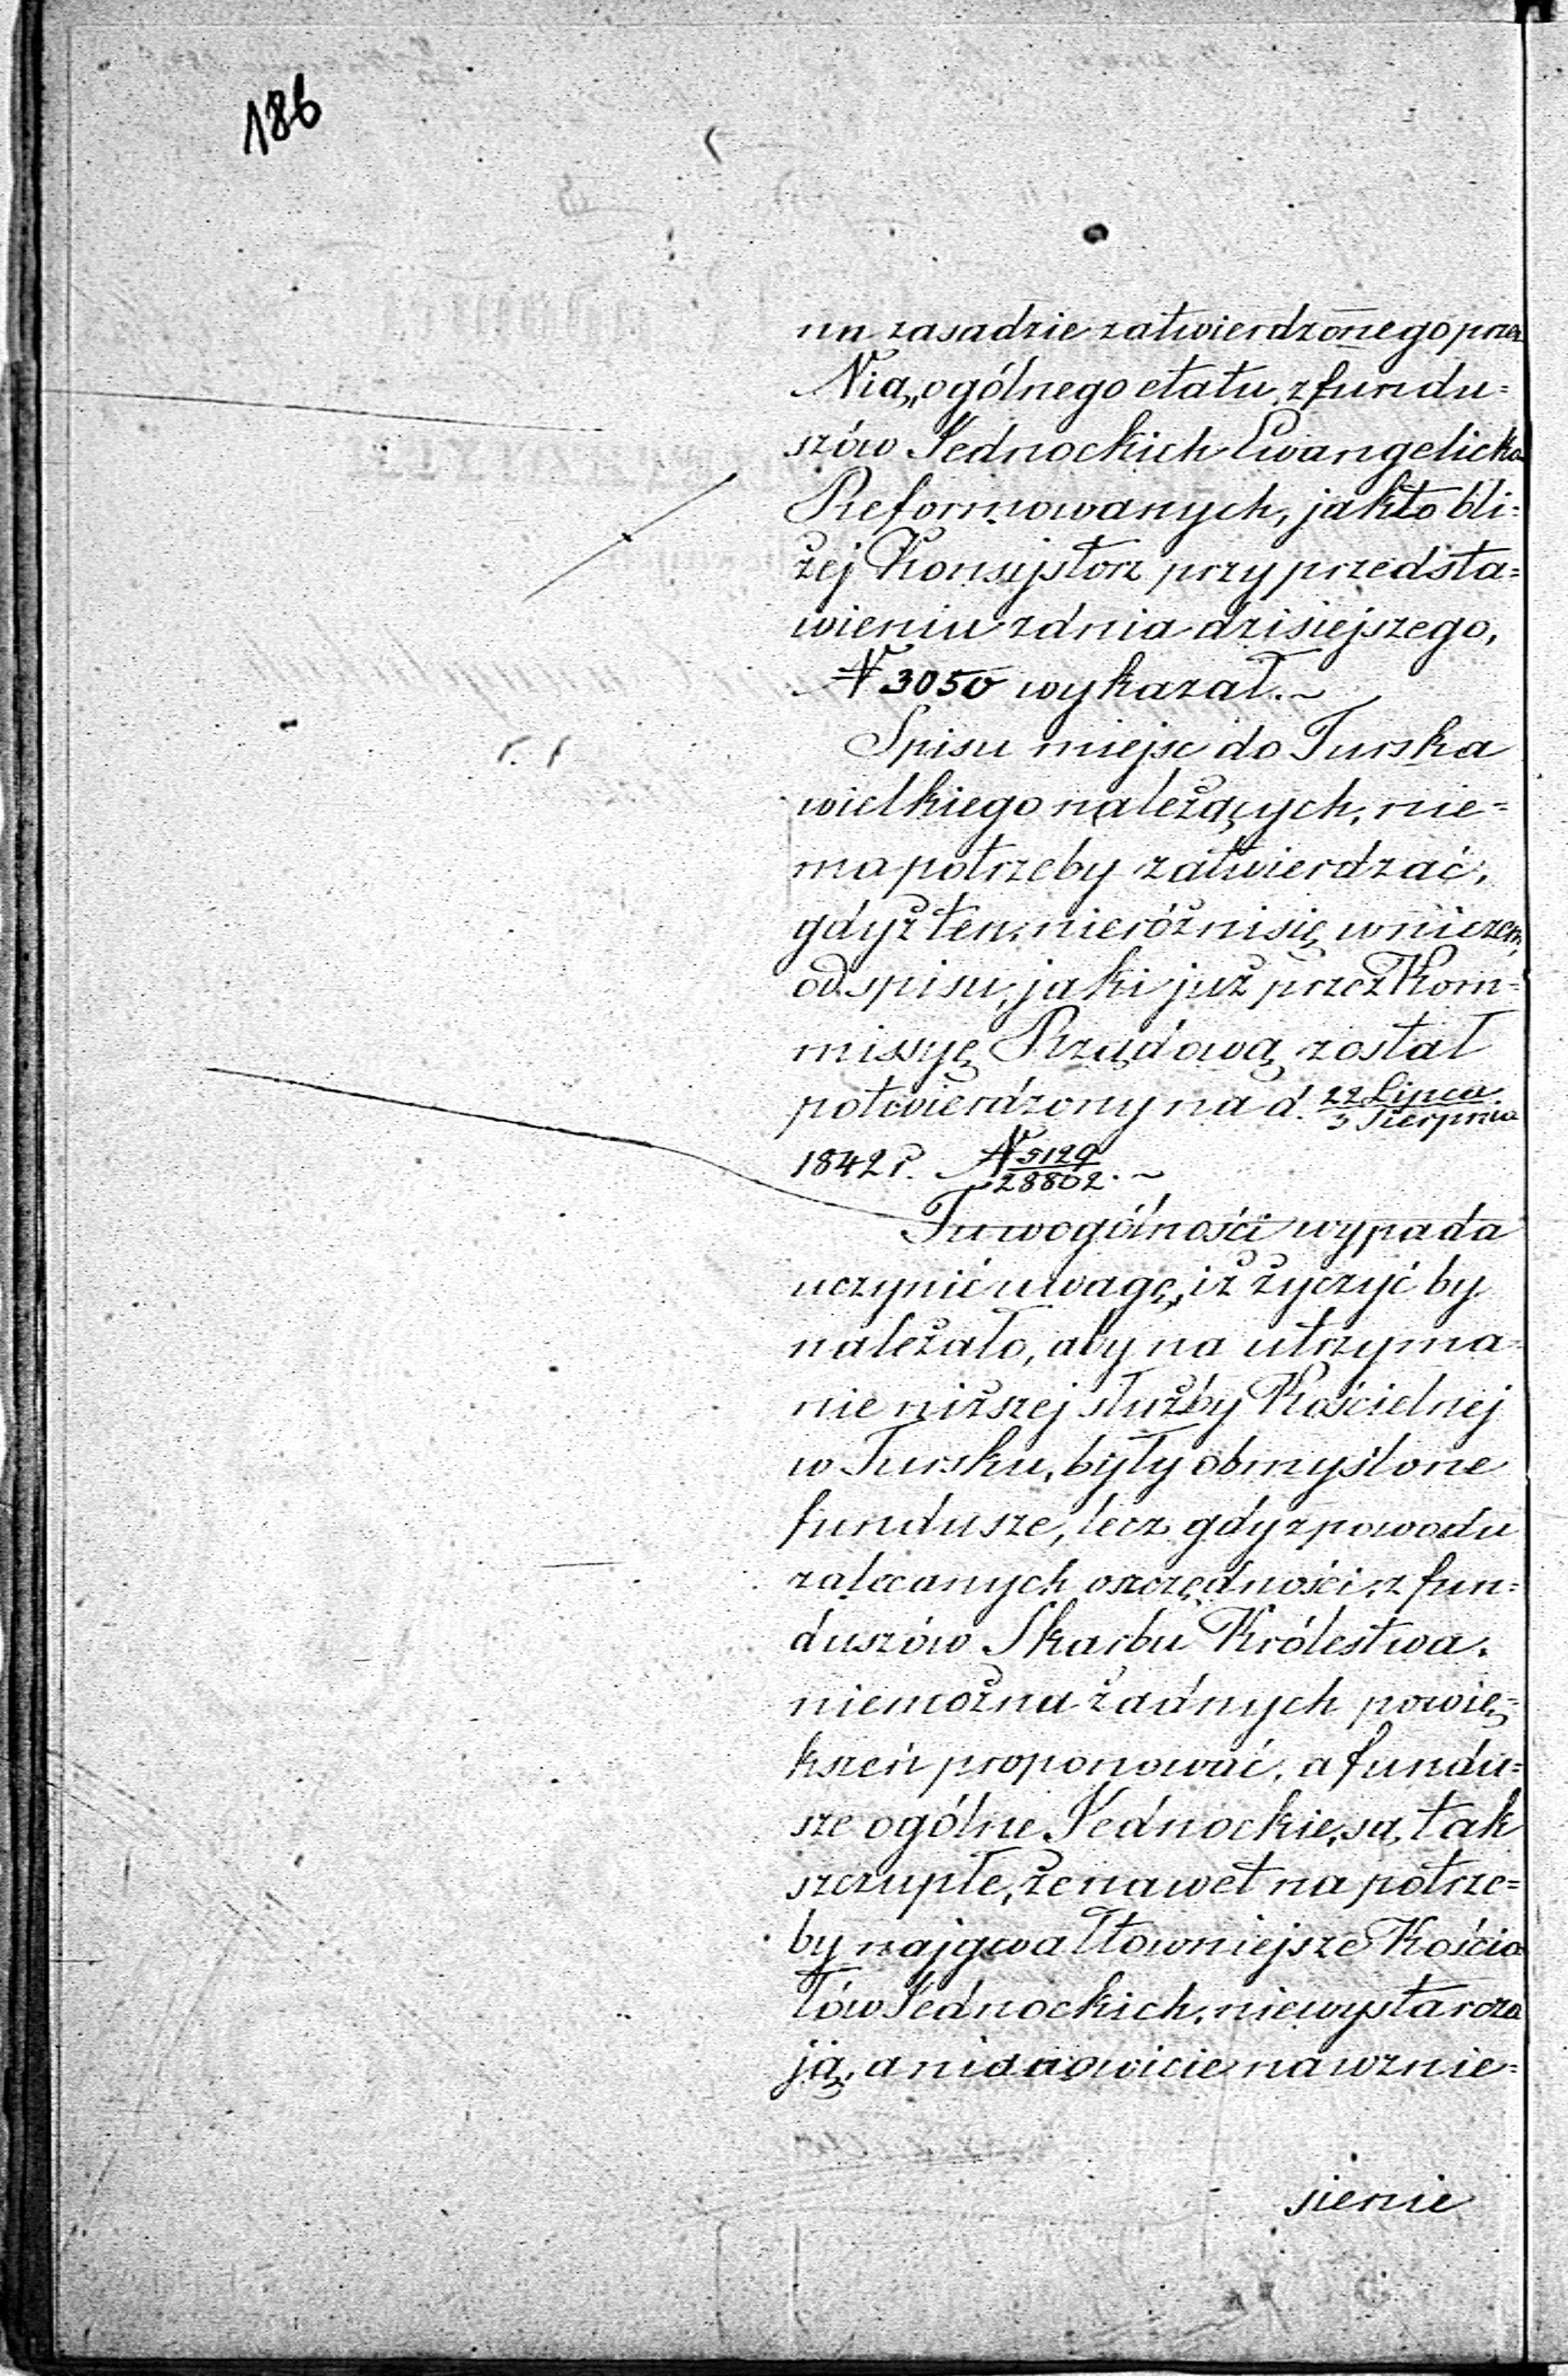 186
na zasadzie zatwierdzonego przez
Nią, ogólnego etatu, z fundu=
szów Jednockich Ewangelicko
Reformowanych, jak to bli=
żej Konsystorz przy przedsta=
wieniu z dnia dzisiejszego,
N 3050 wykazał.~
Spisu miejsc do Turska
wielkiego należących, nie=
ma potrzeby zatwierdzać,
gdyż ten, nieróżni się w niczem,
od spisu, jaki już przez Kom=
missyę Rządową został
potwierdzony na d. 22 Lipca/3 Sierpnia
1842 r. N 5129/28802.~
Tu wogólności wypada
uczynić uwagę, iż życzyć by
należało, aby na utrzyma=
nie niższej służby Kościelnej
w Tursku, były obmyślone
fundusze, lecz gdy z powodu
zalecanych oszczędności, z fun=
duszów Skarbu Królestwa,
niemożna żadnych powię=
kszeń proponować, a fundu=
sze ogólne Jednockie, są tak
szczupłe, że nawet na potrze=
by najgwałtowniejsze Kościo
łów Jednockich, niewystarcza
ją, a mianowicie na wznie=
sienie